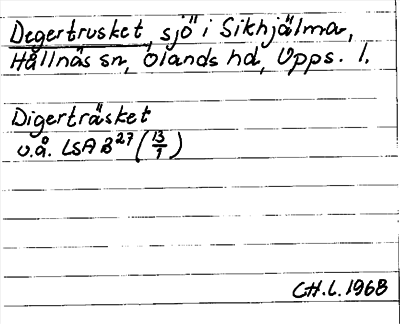 Degertrusket, sjö i Sikhjälma,
Hållnäs sn, Olands hd, Upps. l.
Digerträsket
u.å. LSA B27 (13/1)
CH.L. 1968